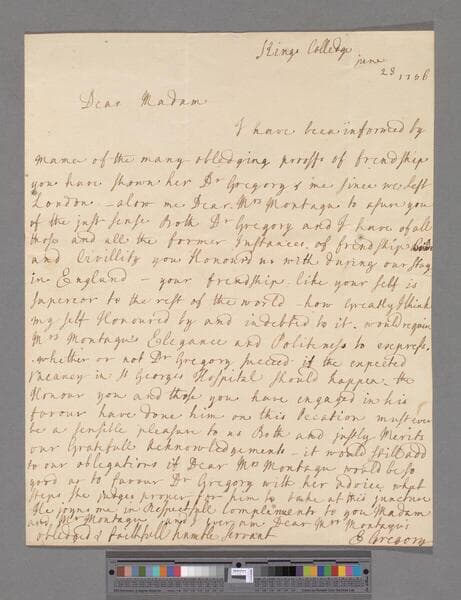 Kings Colledge
june
28 1756
Dear Madam
I have been informed by
Mama of the many obledging prooffs of friendship
you have shown her Dr Gregory & me since we left
London - alow me Dear Mrs Montagu to asure you
of the just sense Both Dr Gregory and I have of all
those and all the former Instances of friendship
and Civillity you Honoured us with During our Stay
in England - your friendship like your self is
Supereor to the rest of the world - how Greatly I think
my self Honoured by and indebted to it. would require
Mrs Montagus Elegance and Politeness to express.
whether or not Dr Gregory succeed if the expected
Vacancy in St Georges Hospital should happen. the
Honour you and those you have engaged in his
favour have done him on this Occation must ever
be a sensible pleasure to us Both and justly Merits
our Gratefull Acknowledgements - it would still add
to our oblegations if Dear Mrs Montagu would be so
good as to favour Dr Gregory with her advice what
steps she judges proper for him to take at this juncture
He joyns me in Respectfull compliments to you Madam
and Mr Montagu and I ever am Dear Mrs Montagu's
obledged & faithfull humble Servant
E Gregory